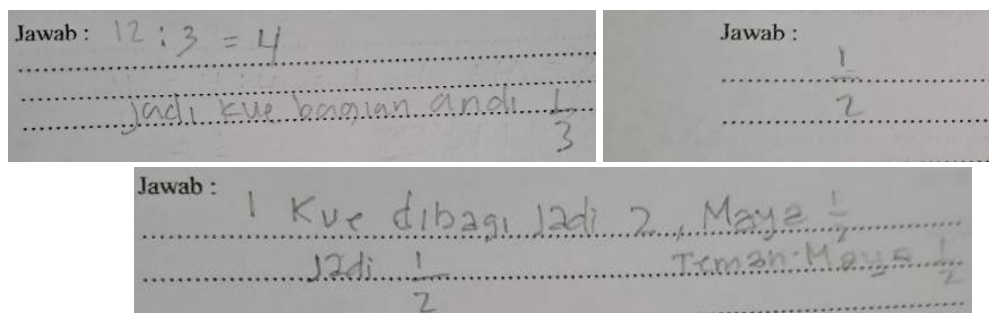 Jawab : 12 : 3 = 4
Jadi kue bagian andi 1/3
Jawab :
1/2
Jawab :
1 Kue dibagi Jadi 2, Maya 1/2
Jadi 1/2 Teman Maya 1/2